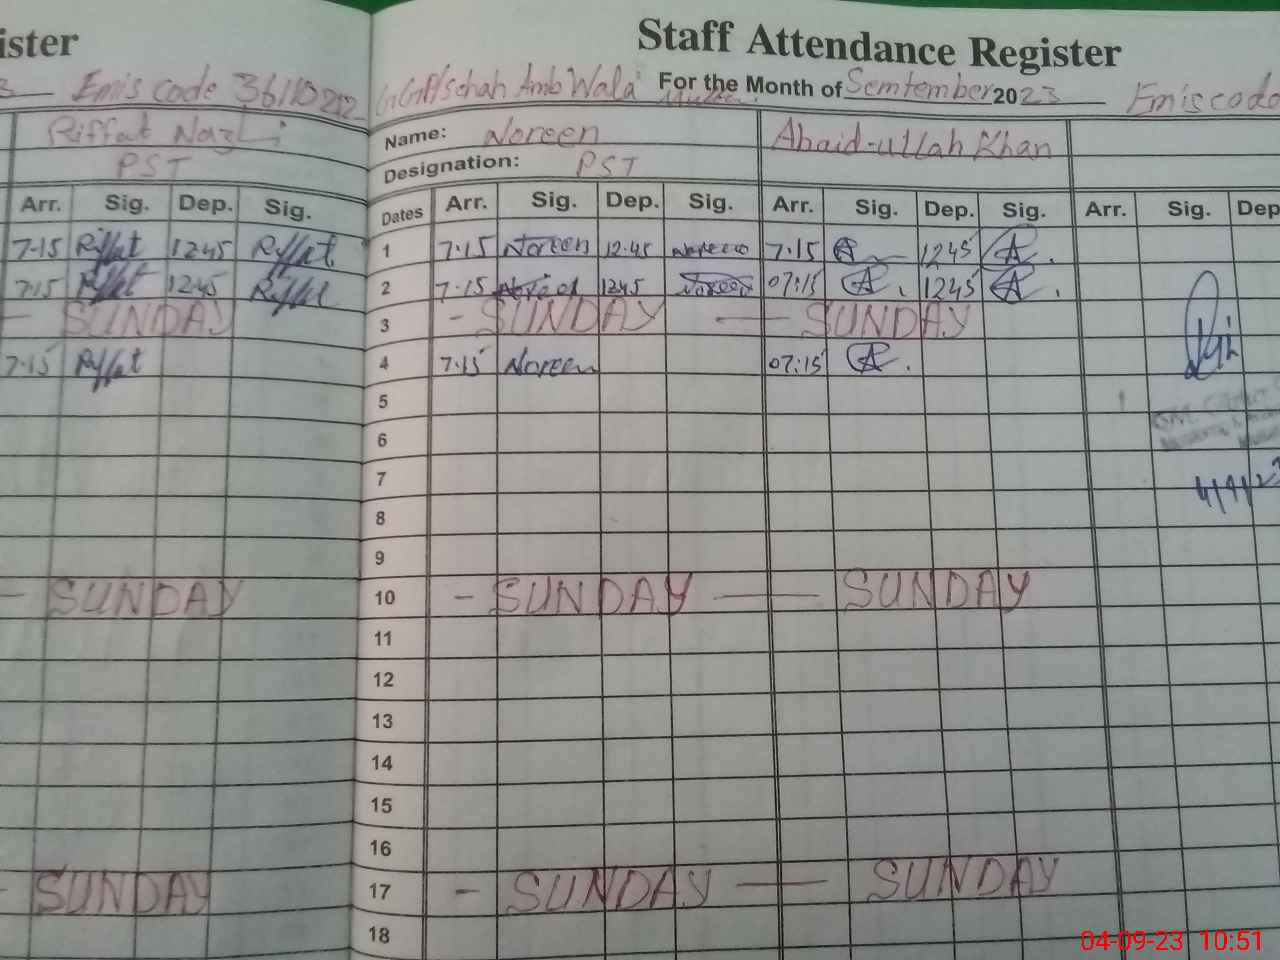 ister
Emis code 36110212
Riffat Nazli
PST
Arr. Sig. Dep. Sig.
7-15 Riffat 1245 Riffat
7-15 Riffat 1245 Riffat
- SUNDAY
7-15 Riffat
- SUNDAY
- SUNDAY
Staff Attendance Register
Amb Wala For the Month of Semtember 2023 Emis code
Name: Noreen Abaid-ullah Khan
Designation: PST
Dates Arr. Sig. Dep. Sig. Arr. Sig. Dep. Sig. Arr. Sig. Dep
1 7.15 Noreen 12.45 Noreen 7.15 A 1245 A
2 7.15 Noreen 1245 Noreen 07:15 A 1245 A
3 - SUNDAY — SUNDAY
4 7.15 Noreen 07:15 A
5
6
7
8
9
10 - SUNDAY — SUNDAY
11
12
13
14
15
16
17 - SUNDAY — SUNDAY
18
04-09-23 10:51